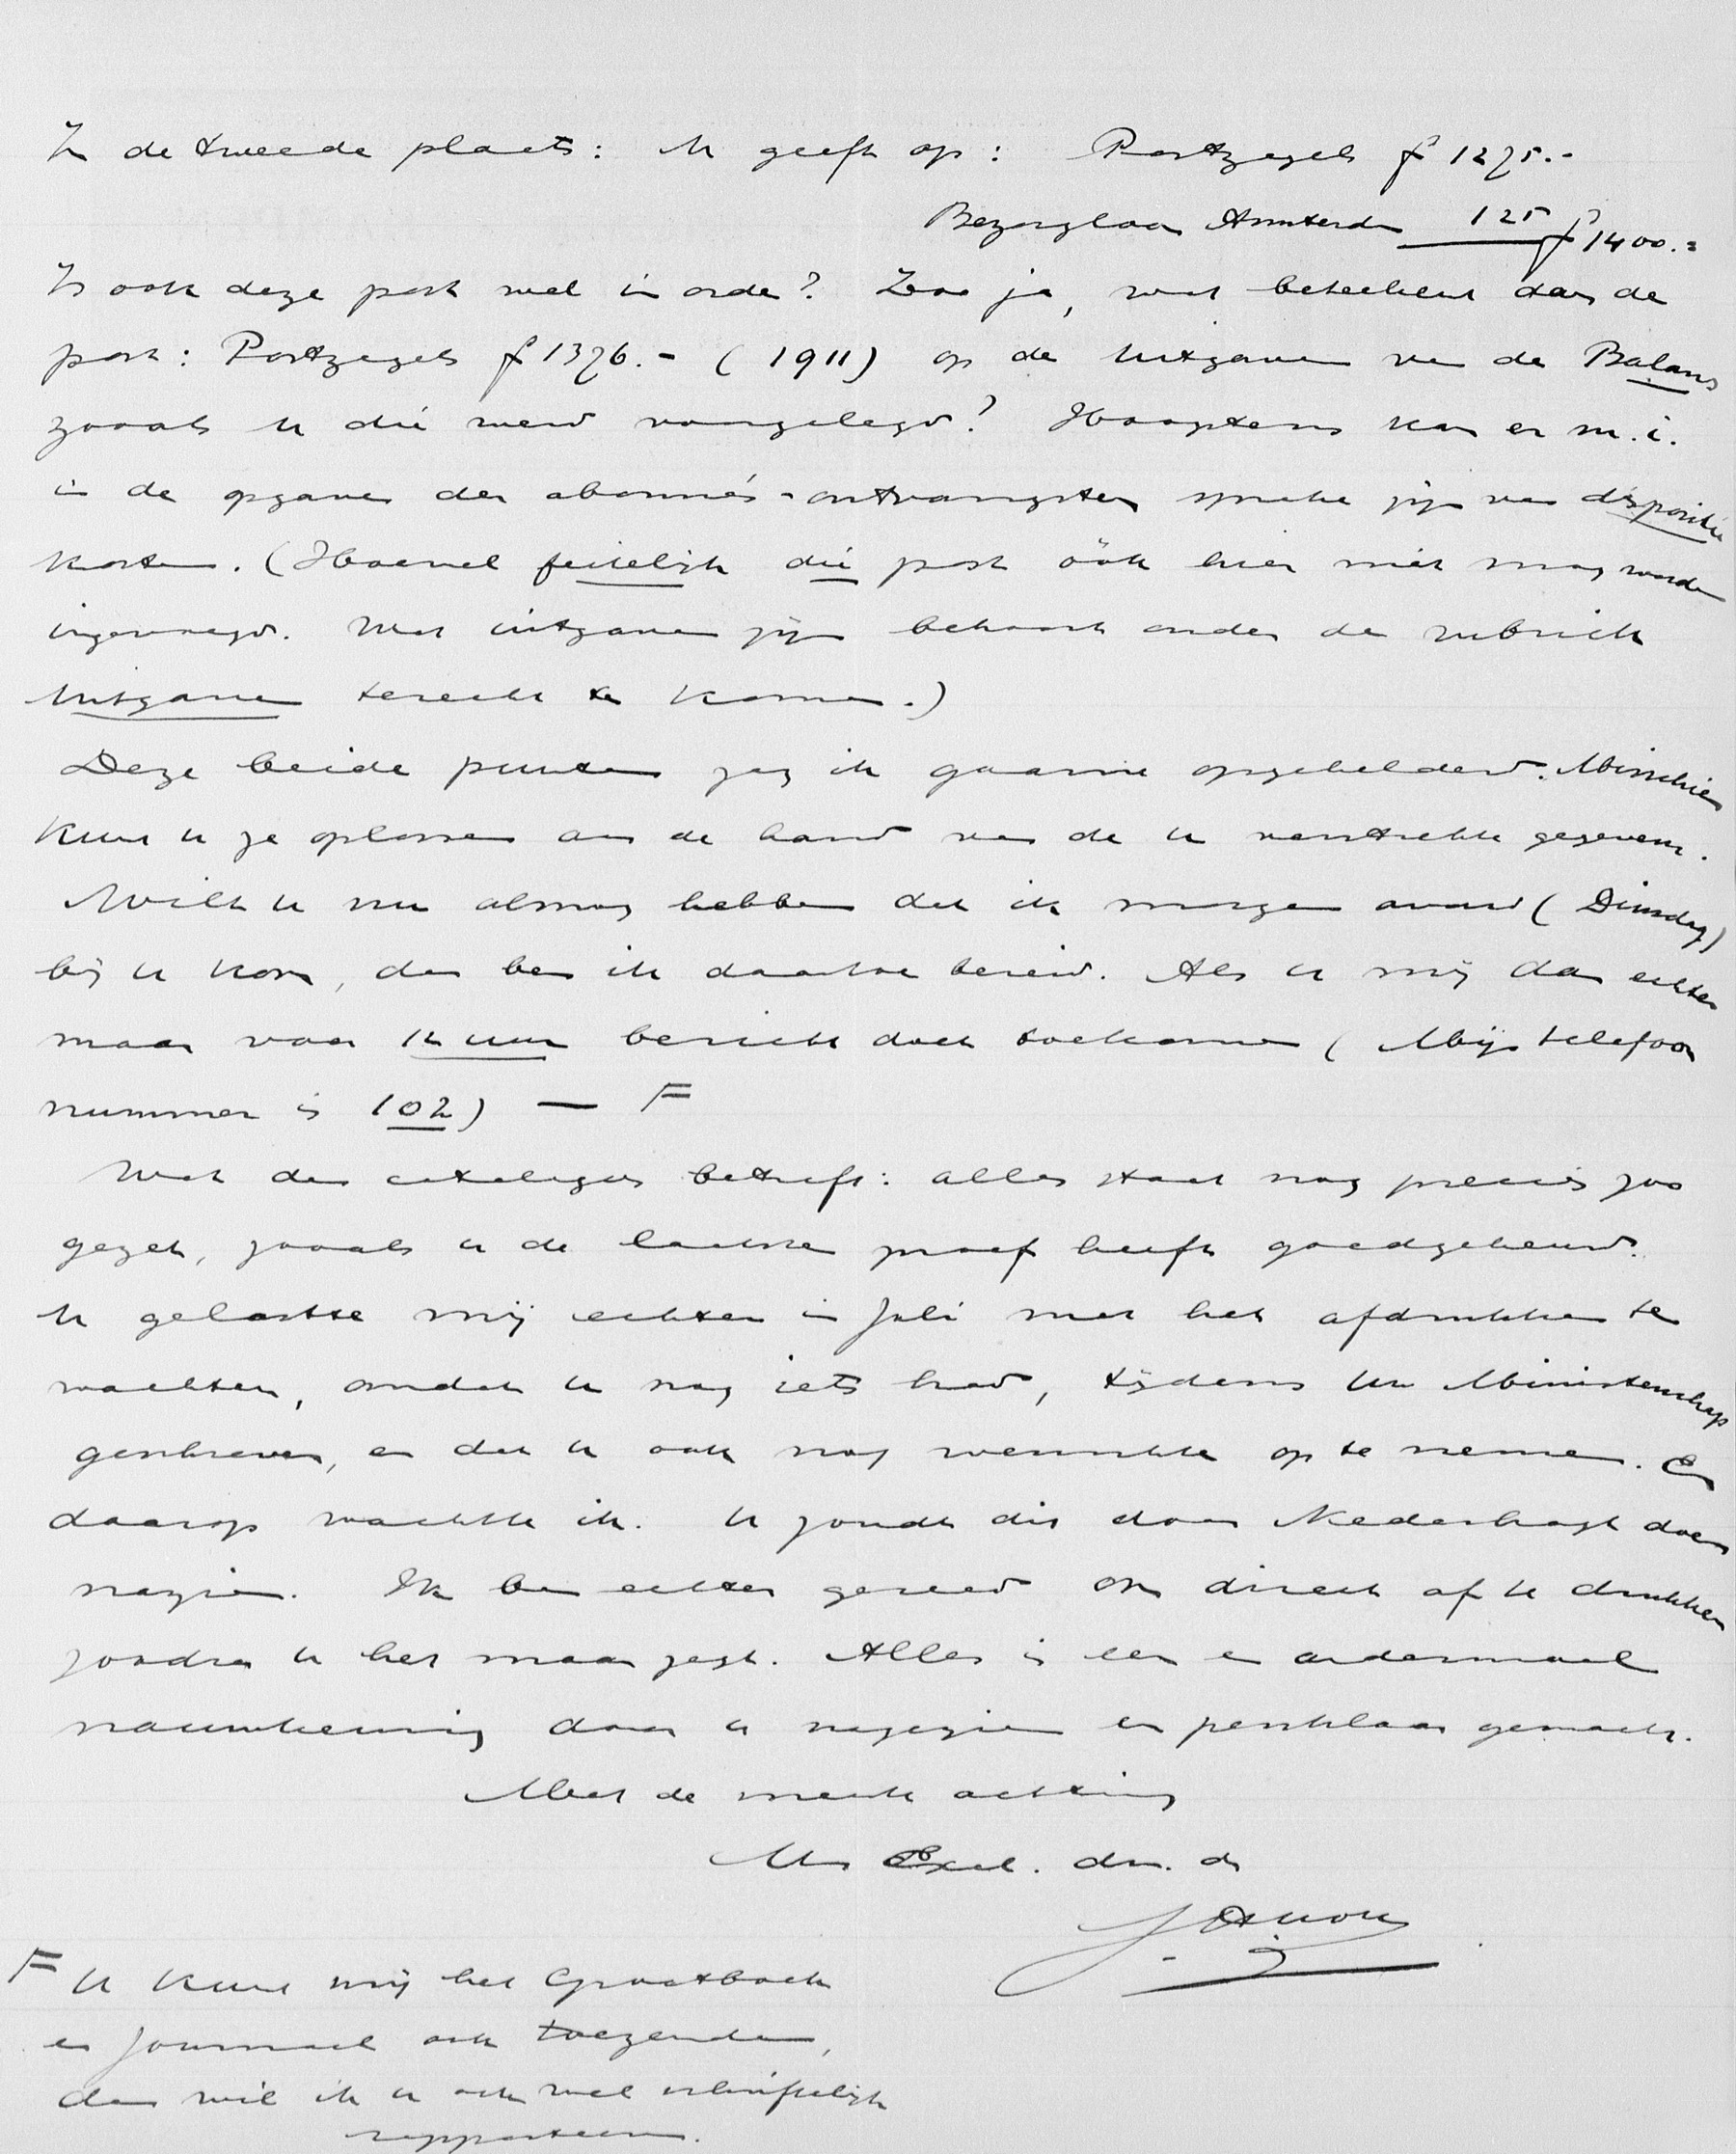 In de tweede plaats: U geeft op: Postzegels f 1275.-
Bezorgloon Amsterdam 125 f 1400.=
Is ook deze post wel in orde? Zoo ja, wat beteekent dan de
post: Postzegels f 1376.- (1911) op de Uitgaven van de Balans
zooals u die werd voorgelegd? Hoogstens kan er m.i.
in de opgaven der abonnés-ontvangsten sprake zijn van dispositie
kosten. (Hoewel feitelijk die post óók hier niet mag worden
ingevoegd. Wat uitgaven zijn behoort onder de rubriek
Uitgaven terecht te komen.)
Deze beide punten zag ik gaarne opgehelderd. Misschien
kunt u ze oplossen aan de hand van de u verstrekte gegevens.
Wilt u nu alsnog hebben dat ik morgen avond (Dinsdag)
bij u kom, dan ben ik daartoe bereid. Als u mij dan echter
maar voor 12 uur bericht doet toekomen (Mijn telefoon
nummer is 102) — F
Wat den catalogus betreft: alles staat nog precies zoo
gezet, zooals u de laatste proef heeft goedgekeurd.
U gelastte mij echter in Juli met het afdrukken te
wachten, omdat u nog iets had, tijdens Uw Ministerschap
geschreven, en dat u ook nog wenschte op te nemen. En
daarop wachtte ik. U zoudt dit door Nederhragt doen
nazien. Ik ben echter gereed om direct af te drukken
zoodra u het maar zegt. Alles is een en andermaal
nauwkeurig door u nagezien en persklaar gemaakt.
Met de meeste achting
Uw Excel. dw. dr
F U kunt mij het Grootboek
en Journaal ook toezenden,
dan wil ik u ook wel schriftelijk
rapporteeren.